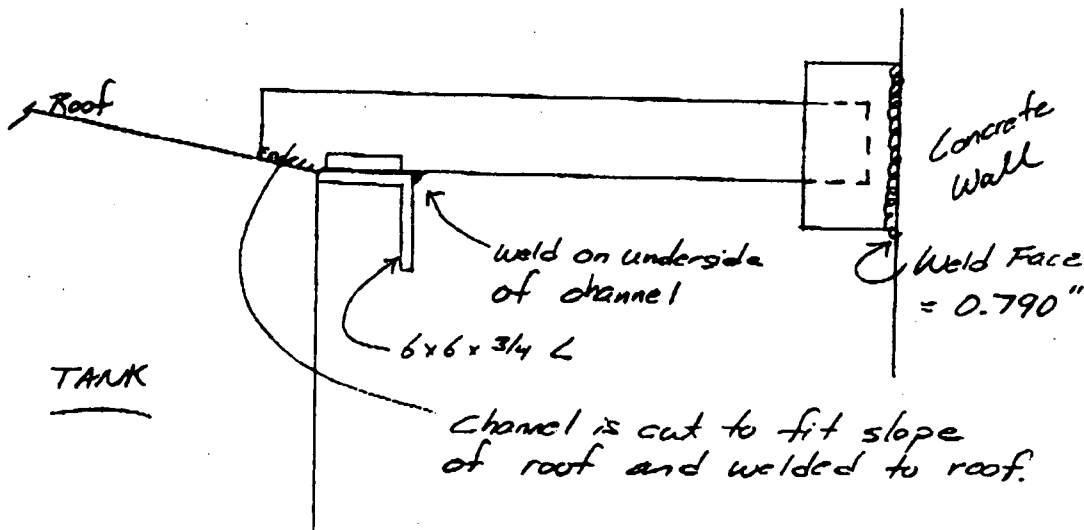 Roof
Concrete
Wall
weld on underside
of channel
Weld Face
= 0.790"
6 x 6 x 3/4 L
TANK
Channel is cut to fit slope
of roof and welded to roof.